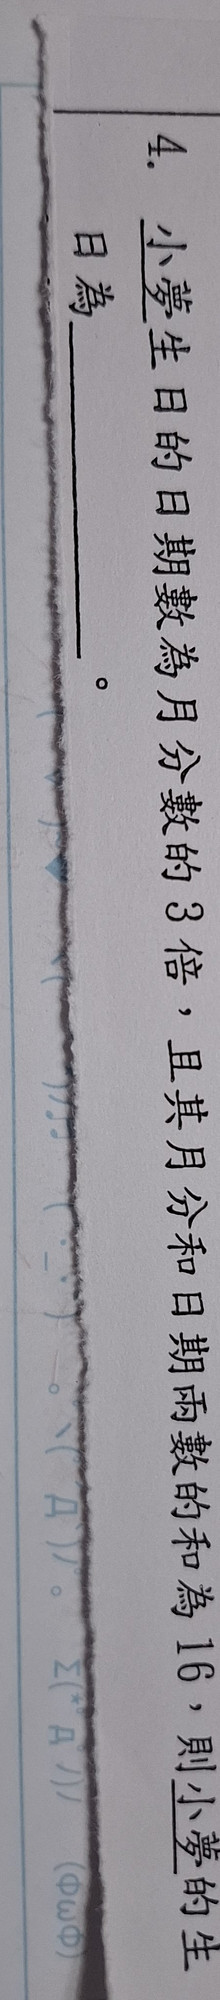 4. 小夢生日的日期數為月分數的3倍，且其月分和日期兩數的和為16，則小夢的生
日為＿＿＿＿＿＿。